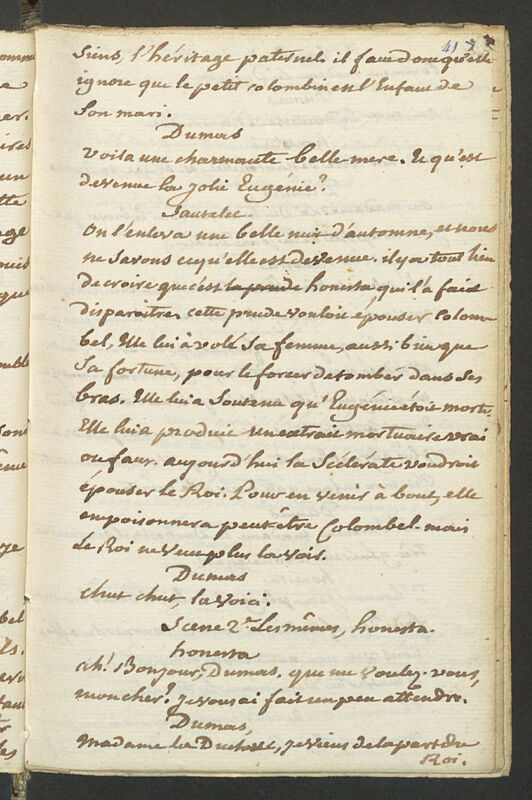 41
siens, l'héritage paternel. il faut donc qu'elle
ignore que le petit colombin est l'Enfant de
son mari.
Dumas
voila une charmante belle mere. Et qu'est
devenue la jolie Eugénie?
Sautelet
On l'enleva une belle nuit d'automne, et nous
ne savons ce qu'elle est devenue. il y a tout lieu
de croire que c'est la prude honesta qui l'a fait
disparaitre. cette prude vouloit épouser colom-
bel, Elle lui à volé sa femme, aussi bien que
sa fortune, pour le forcer de tomber dans ses
bras. Elle lui a soutenu qu'Eugénie étoit morte,
Elle lui a produit un extrait mortuaire vrai
ou faux. aujourd'hui la scélérate voudroit
épouser le Roi. Pour en venir à bout, elle
empoisonnera peut être Colombel. mais
le Roi ne veut plus la voir.
Dumas
chut chut, la voici.
Scene 2e. Les mêmes, honesta.
honesta
ah! Bonjour, Dumas. que me voulez-vous,
mon cher? je vous ai fait un peu attendre.
Dumas,
Madame la Duchesse, je viens de la part du
Roi.